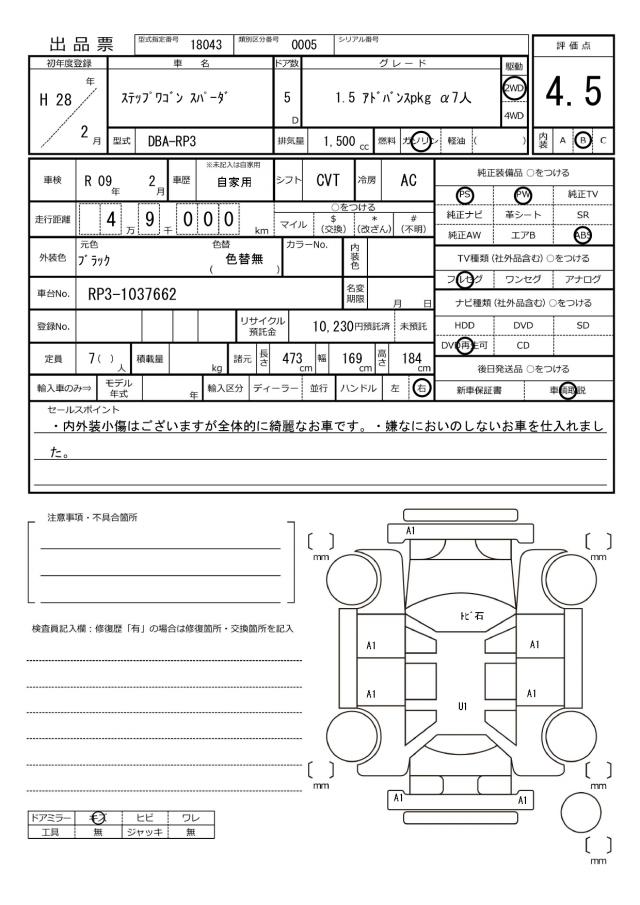 出品票
型式指定番号 18043 類別区分番号 0005 シリアル番号
評価点
4.5
初年度登録 車名 ドア数 グレード 駆動
H 28 年 2 月
ｽﾃｯﾌﾟﾜｺﾞﾝ ｽﾊﾟｰﾀﾞ
5 D
1.5 ｱﾄﾞﾊﾞﾝｽpkg α7人
2WD
4WD
型式 DBA-RP3 排気量 1,500 cc 燃料 ガソリン 軽油 ( )
内装 A B C
車検 R 09 年 2 月 車歴 ※未記入は自家用 自家用 シフト CVT 冷房 AC
純正装備品 ○をつける
PS PW 純正TV
純正ナビ 革シート SR
純正AW エアB ABS
走行距離 4 万 9 千 0 0 0 km
○をつける
マイル $(交換) *(改ざん) #(不明)
外装色 元色 ﾌﾞﾗｯｸ 色替 ( 色替無 ) カラーNo. 内装色
TV種類 (社外品含む) ○をつける
フルセグ ワンセグ アナログ
車台No. RP3-1037662 名変期限 月 日
ナビ種類 (社外品含む) ○をつける
HDD DVD SD
DVD再生可 CD
登録No. リサイクル預託金 10,230円預託済 未預託
定員 7 ( ) 人 積載量 kg 諸元 長さ 473 cm 幅 169 cm 高さ 184 cm
後日発送品 ○をつける
新車保証書 車輌取説
輸入車のみ⇒ モデル年式 年 輸入区分 ディーラー 並行 ハンドル 左 右
セールスポイント
・内外装小傷はございますが全体的に綺麗なお車です。・嫌なにおいのしないお車を仕入れまし
た。
注意事項・不具合箇所
検査員記入欄：修復歴「有」の場合は修復箇所・交換箇所を記入
A1
mm mm
ﾄﾋﾞ石
A1 A1
A1 A1
U1
mm mm
A1 A1
mm
ドアミラー キズ ヒビ ワレ
工具 無 ジャッキ 無